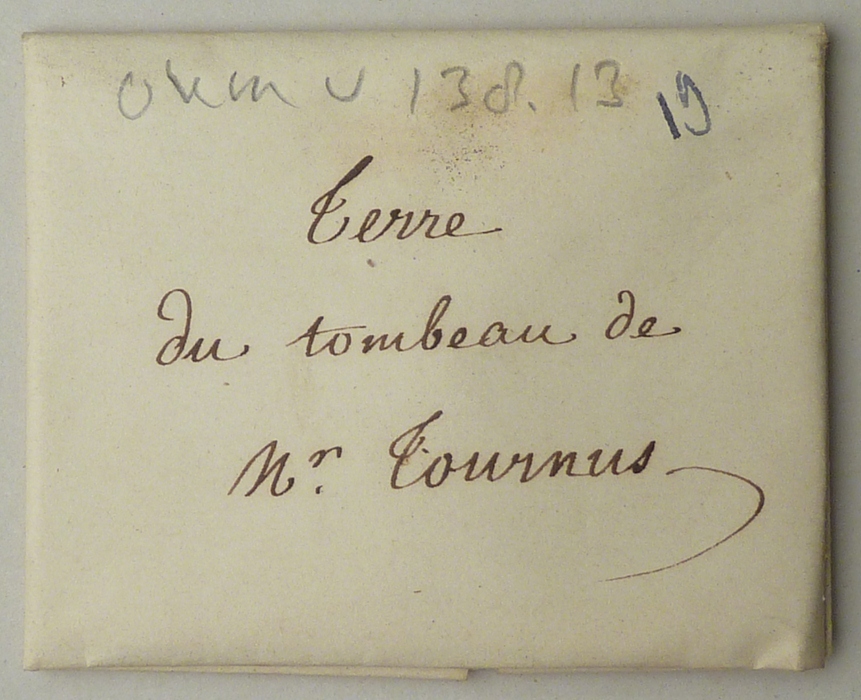 138.13
19
Terre
du tombeau de
Mr. Tournus